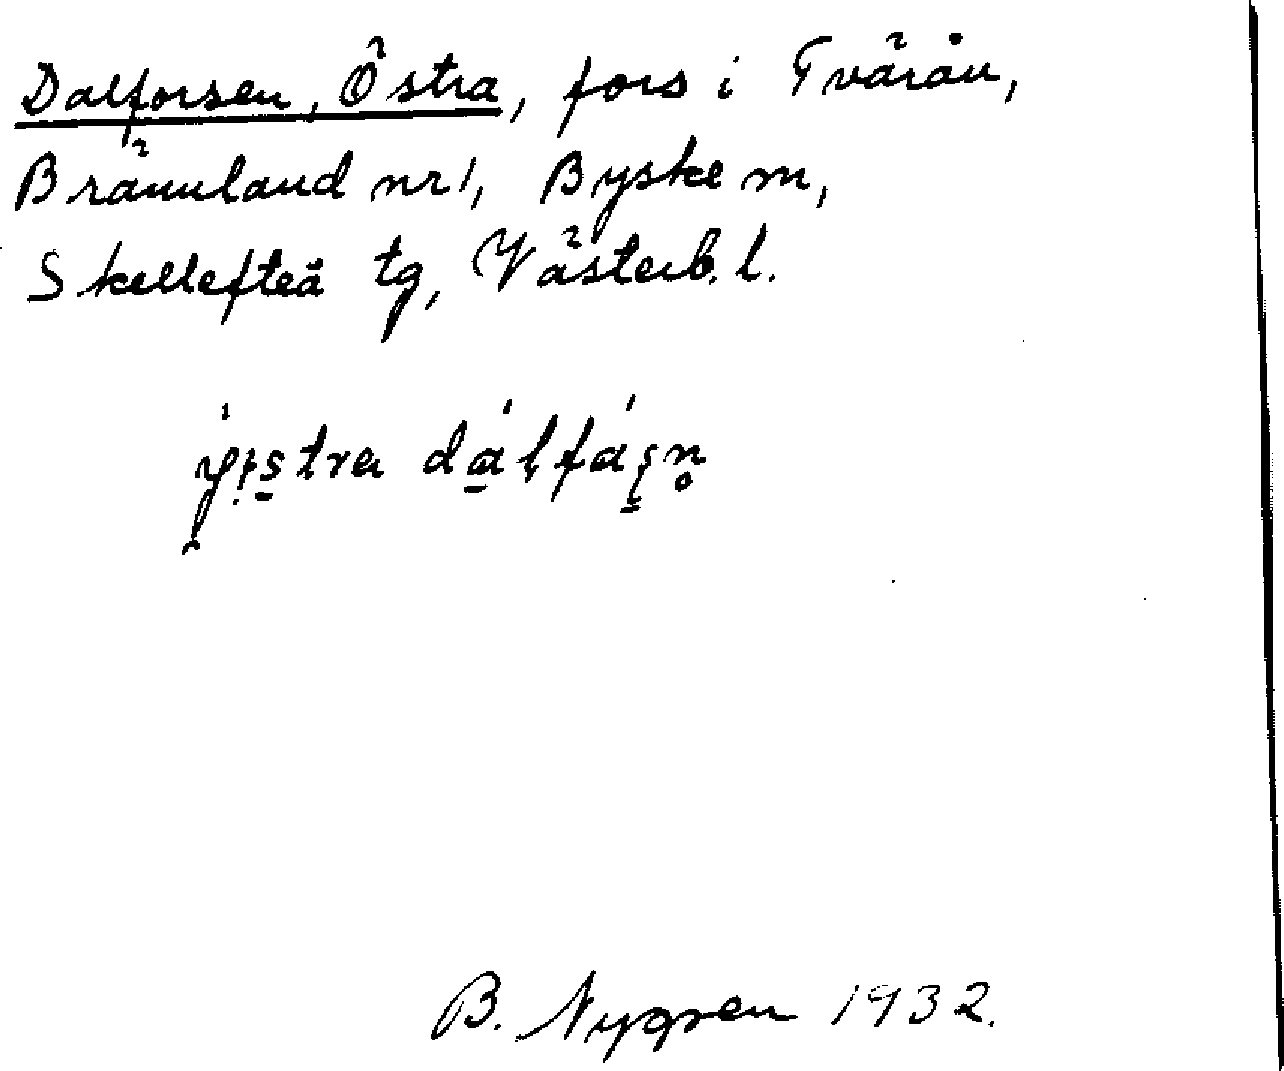 Dalforsen, Östra, fors i Tvärån,
Brännland nr 1, Byske sn,
Skellefteå tg, Västerb. l.
B. Nygren 1932.